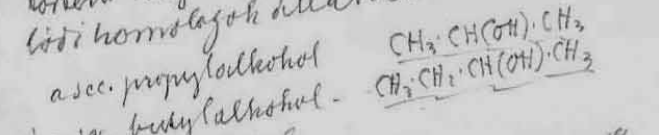 homologok
a sec. propylalkohol CH3·CH(OH)·CH3
butylalkohol - CH3·CH2·CH(OH)·CH3